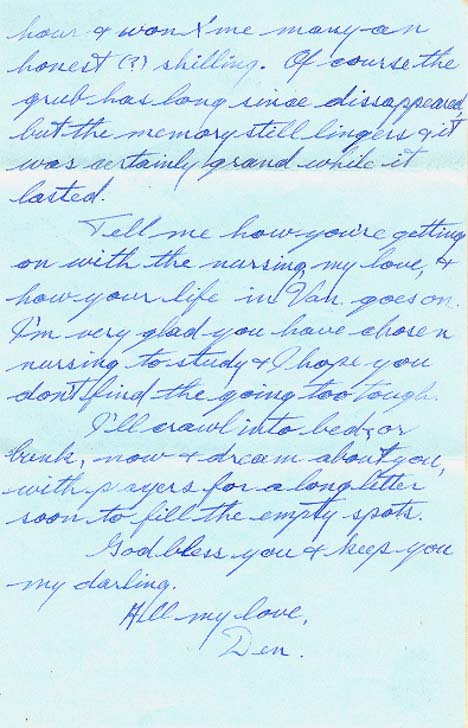 hour & won me many an
honest (?) shilling. Of course the
grub has long since dissappeared,
but the memory still lingers & it
was certainly grand while it
lasted.
Tell me how you're getting
on with the nursing, my love, &
how your life in Van goes on.
I'm very glad you have chosen
nursing to study & I hope you
don't find the going too tough.
I'll crawl into bed, or
bunk, now & dream about you,
with prayers for a long letter
soon to fill the empty spots.
God bless you & keep you
my darling.
All my love,
Den.